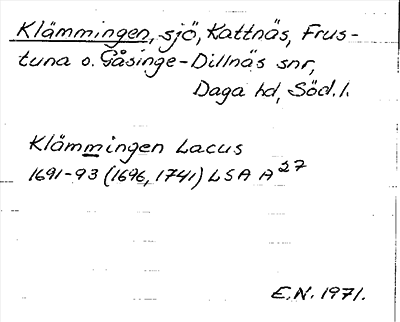 Klämmingen, sjö, Kattnäs, Frus-
tuna o. Gåsinge-Dillnäs snr,
Daga hd, Söd. l.
Klämmingen Lacus
1691-93 (1696, 1741) LSA A 27
E.N. 1971.